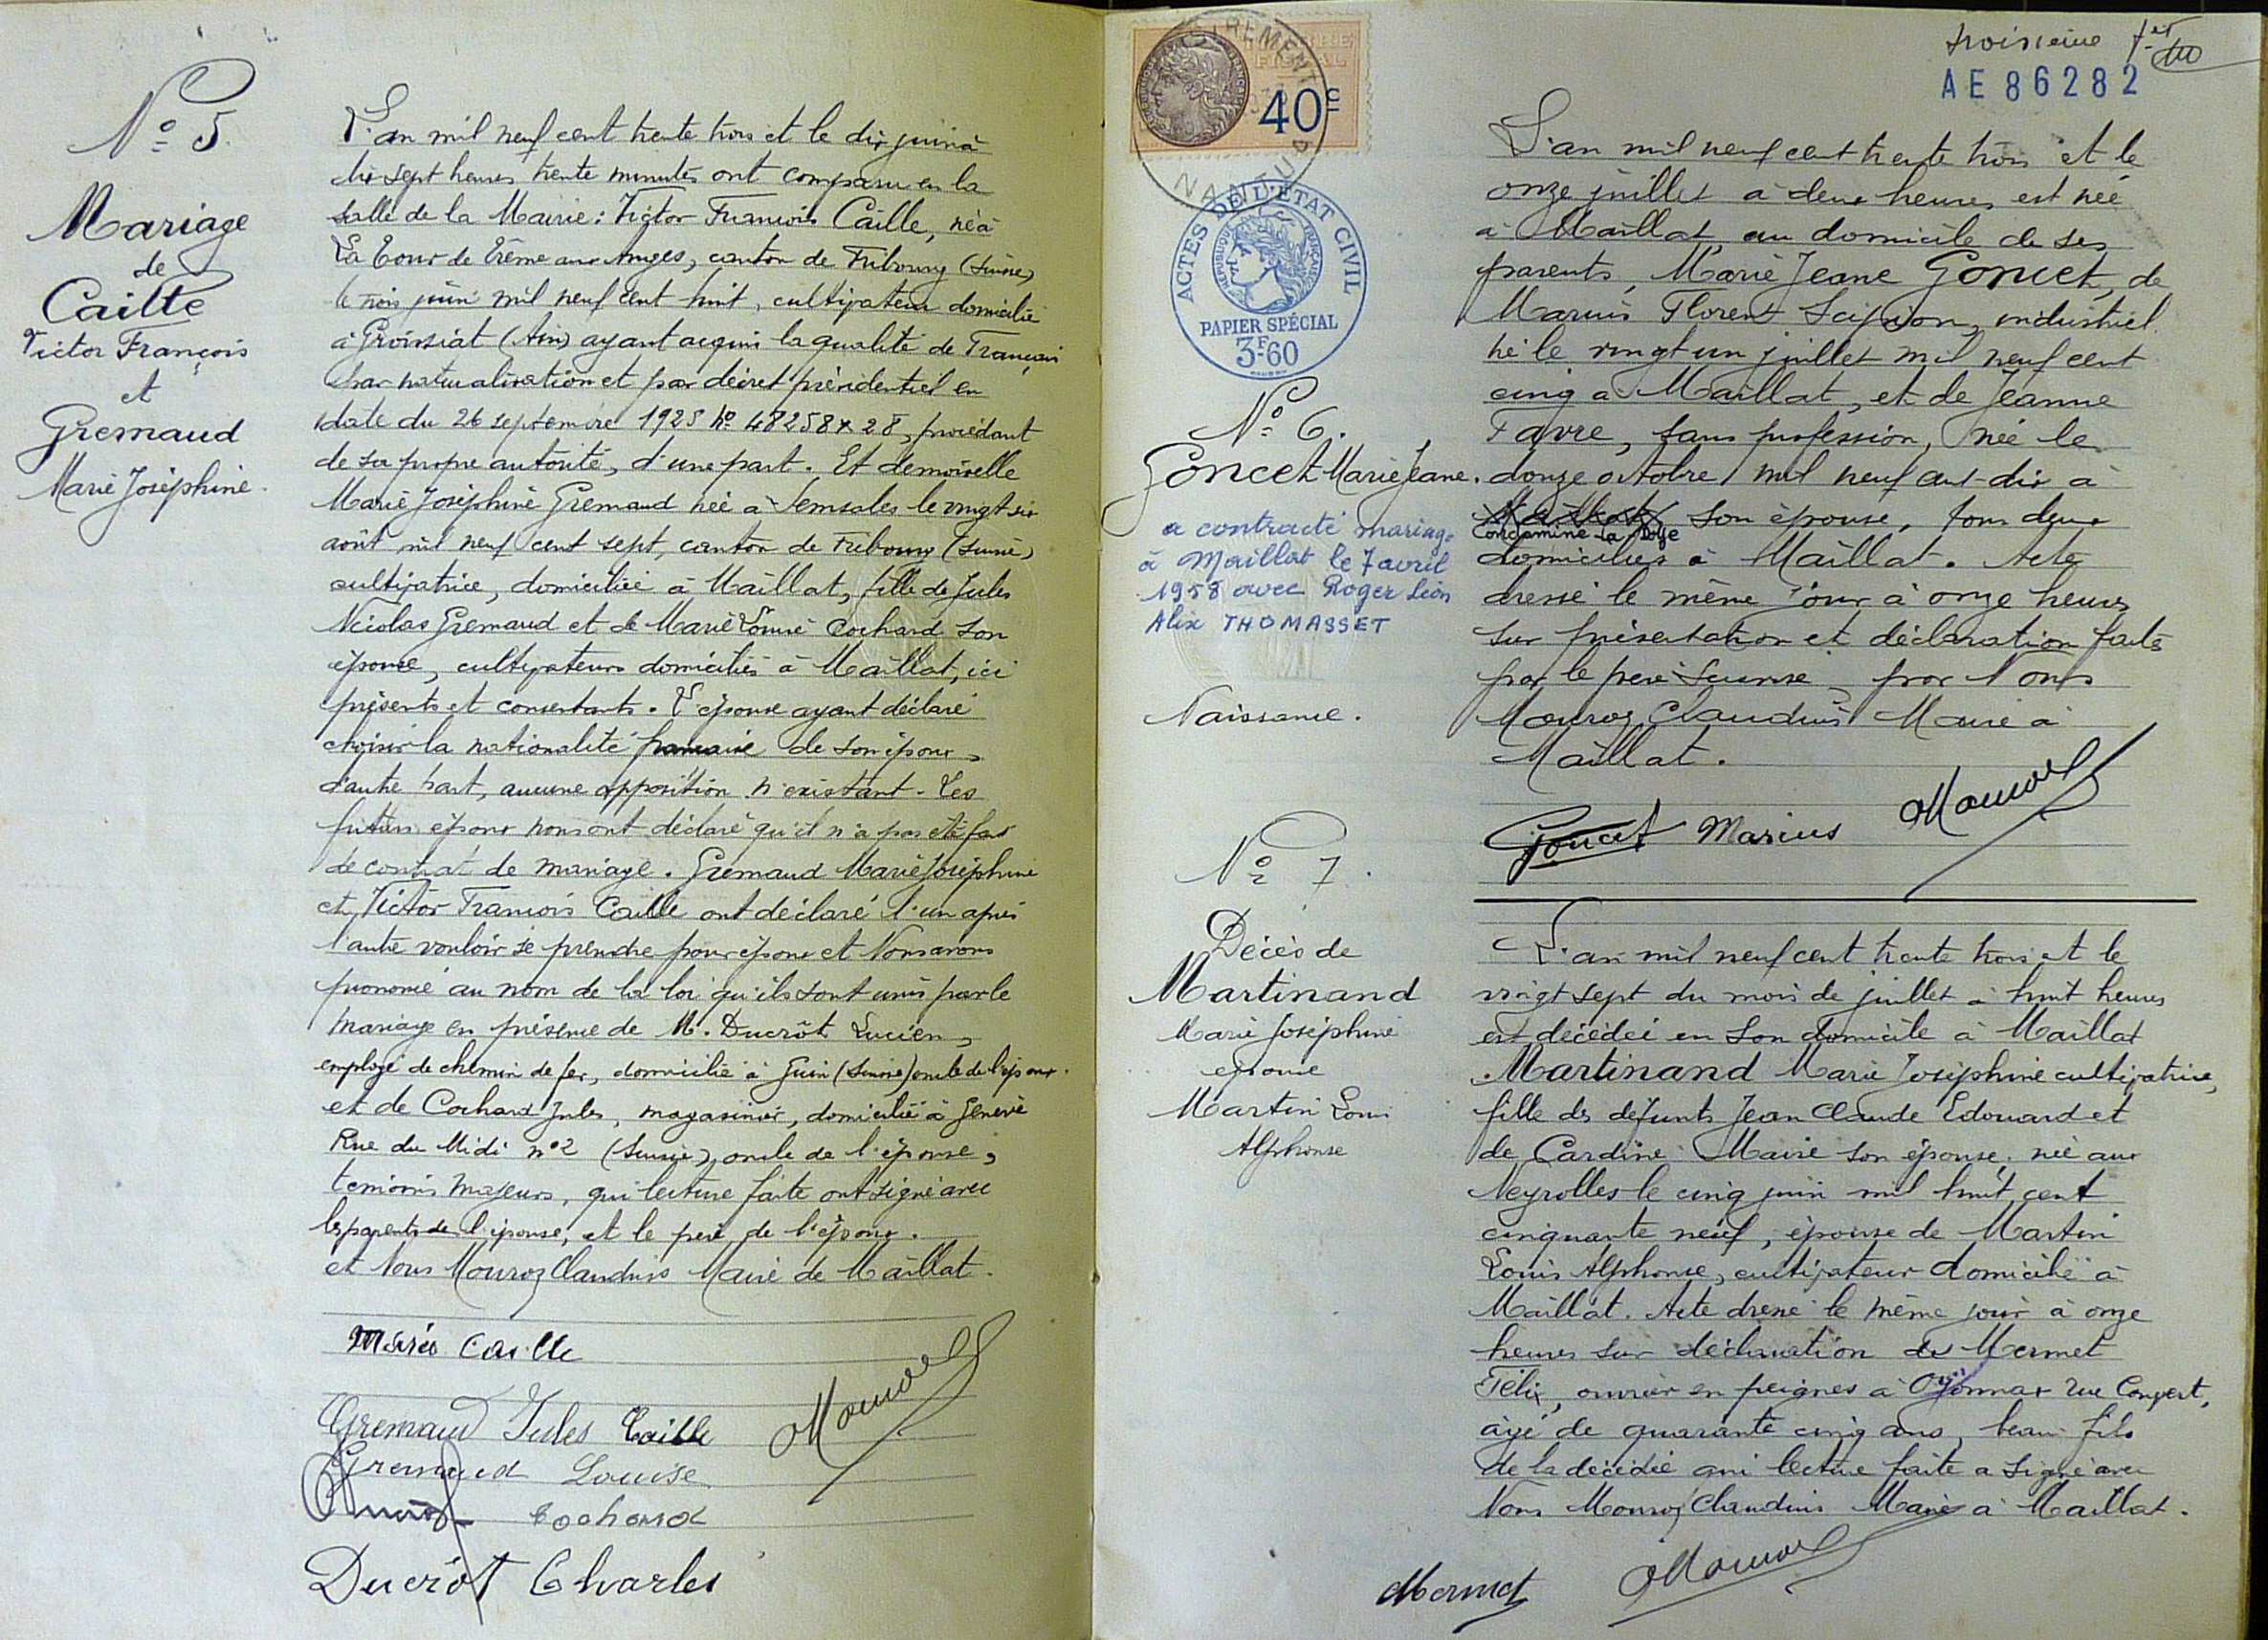 N° 5.
Mariage
de
Caille
Victor François
et
Gremaud
Marie Joséphine.
L'an mil neuf cent trente trois et le dix juin à
dix sept heures trente minutes ont comparu en la
salle de la Mairie : Victor François Caille, né à
La Tour de Trême aux Anges, canton de Fribourg (Suisse)
le trois juin mil neuf cent huit, cultivateur domicilié
à Groissiat (Ain) ayant acquis la qualité de Français
par naturalisation et par décret présidentiel en
date du 26 septembre 1925 N° 48258 x 28, procédant
de sa propre autorité, d'une part. Et demoiselle
Marie Joséphine Gremaud née à Semsales le vingt six
août mil neuf cent sept, canton de Fribourg (Suisse)
cultivatrice, domiciliée à Maillat, fille de Jules
Nicolas Gremaud et de Marie Louise Cochard son
épouse, cultivateurs domiciliés à Maillat, ici
présents et consentants. L'épouse ayant déclaré
choisir la nationalité française de son époux,
d'autre part, aucune opposition n'existant. Les
futurs époux nous ont déclaré qu'il n'a pas été fait
de contrat de mariage. Gremaud Marie Joséphine
et Victor François Caille ont déclaré l'un après
l'autre vouloir se prendre pour époux et Nous avons
prononcé au nom de la loi qu'ils sont unis par le
mariage en présence de M. Ducrôt Lucien,
employé de chemin de fer, domicilié à Guin (Suisse) oncle de l'époux.
et de Cochard Jules, magasinier, domicilié à Genève
Rue du Midi n° 2 (Suisse), oncle de l'épouse,
témoins majeurs, qui lecture faite ont signé avec
les parents de l'épouse, et le père de l'époux.
et Nous Mouroz Claudius Maire de Maillat.
Marie Caille
Gremaud Jules Caille Mouroz
Gremaud Louise
Cochard
Ducrôt Charles
troisième
AE 86282
40c
NANTUA
ACTES DE L'ÉTAT CIVIL
RÉPUBLIQUE FRANÇAISE
PAPIER SPÉCIAL
3F.60
N° 6.
Goncet Marie Jeane.
a contracté mariage
à Maillat le 7 avril
1958 avec Roger Léon
Alix THOMASSET
Naissance.
L'an mil neuf cent trente trois et le
onze juillet à deux heures est née
à Maillat, au domicile de ses
parents, Marie Jeane Goncet, de
Marius Florent Scipion, industriel
né le vingt un juillet mil neuf cent
cinq à Maillat, et de Jeanne
Favre, sans profession, née le
douze octobre mil neuf cent dix à
Maillat son épouse, tous deux
Condamine la Doye
domiciliés à Maillat. Acte
dressé le même jour à onze heures
sur présentation et déclaration faite
par le père susnommé, par Nous
Mouroz Claudius Maire à
Maillat.
Goncet Marius Mouroz
N° 7.
Décès de
Martinand
Marie Joséphine
épouse
Martin Louis
Alphonse
L'an mil neuf cent trente trois et le
vingt sept du mois de juillet à huit heures
est décédée en son domicile à Maillat
Martinand Marie Joséphine cultivatrice,
fille des défunts Jean Claude Edouard et
de Cardine Marie son épouse. née aux
Neyrolles le cinq juin mil huit cent
cinquante neuf, épouse de Martin
Louis Alphonse, cultivateur domicilié à
Maillat. Acte dressé le même jour à onze
heures sur déclaration de Mermet
Félix, ouvrier en peignes à Oyonnax rue Convert,
âgé de quarante cinq ans, beau fils
de la décédée qui lecture faite a signé avec
Nous Mouroz Claudius Maire à Maillat.
Mermet Mouroz